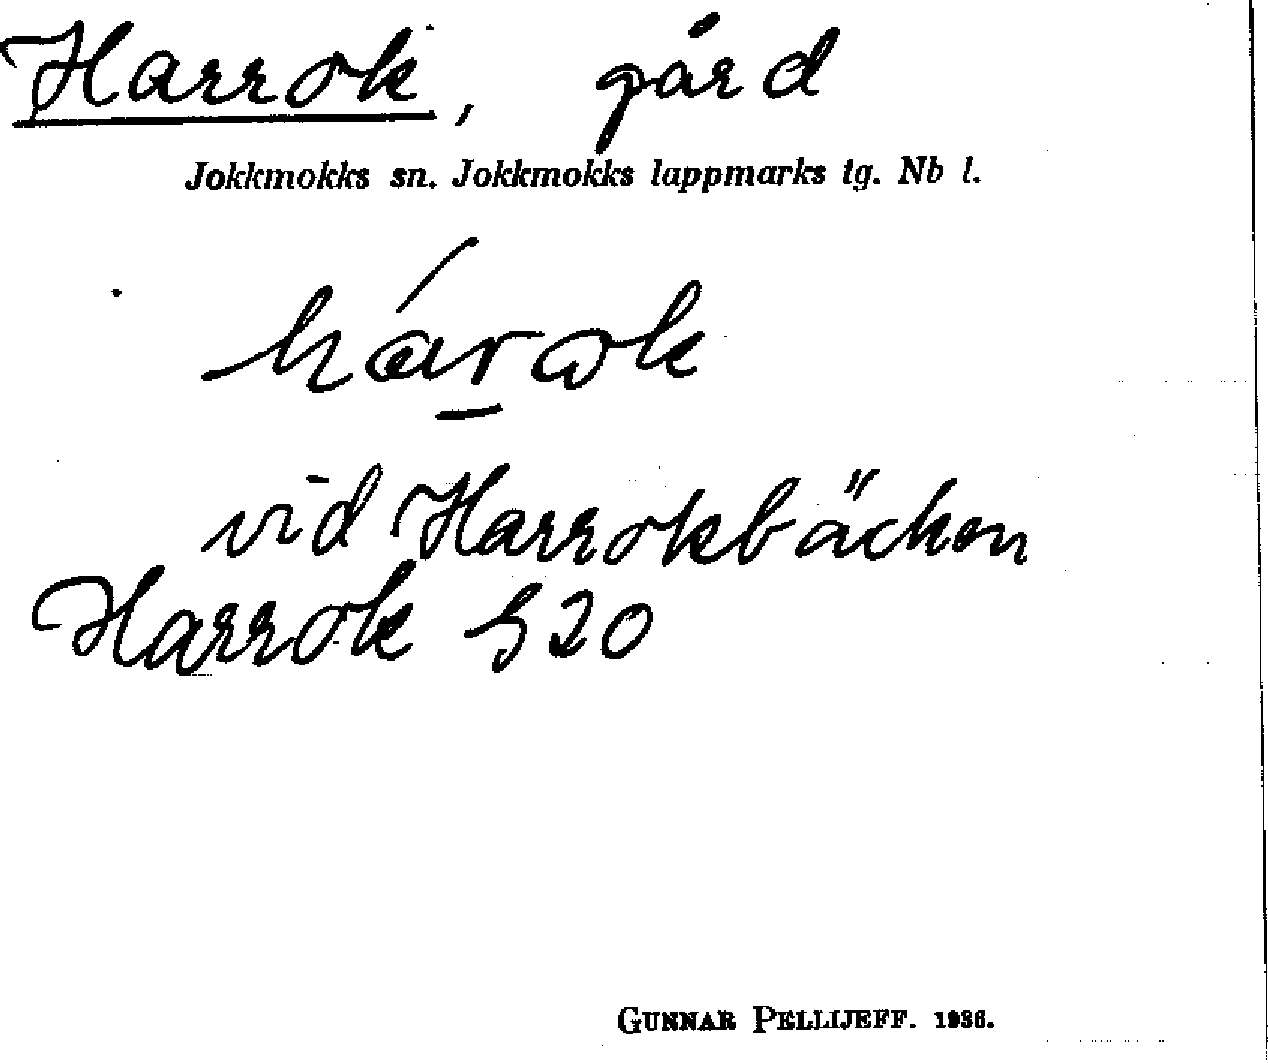 Harrok, gård
Jokkmokks sn. Jokkmokks lappmarks tg. Nb l.
hárok
vid Harrokbäcken
Harrok S20
GUNNAR PELLIJEFF. 1936.